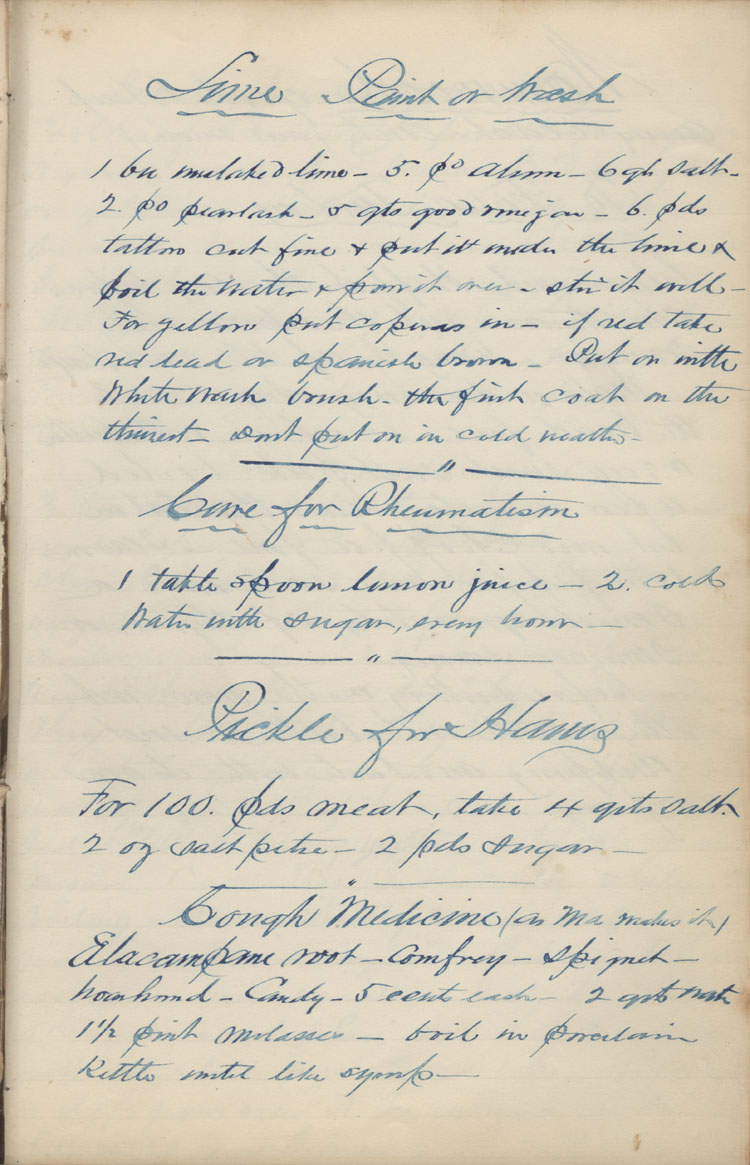 Lime Paint or Wash
1 bu unslaked lime - 5. pd Alum - 6 qts salt -
2. pd pearlash - 5 qts good vinegar - 6. pds
tallow cut fine & put it under the lime &
boil the water & pour it over - stir it well -
For yellow put coperas in - if red take
red lead or spanish brown - Put on with
White Wash brush - the first coat on the
thinest - dont put on in cold weather -
"
Cure for Rheumatism
1 table spoon lemon juice - 2. cold
Water with sugar, every hour -
"
Pickle for Hams
For 100. pds meat, take 4 qts salt.
2 oz salt petre - 2 pds sugar -
"
Cough Medicine (as Ma makes it)
Elacampane root - Comfrey - spignet -
hoarhound - Candy - 5 cent each - 2 qts water
1 1/2 pint molasses - boil in porcelain
kettle until like syrup -